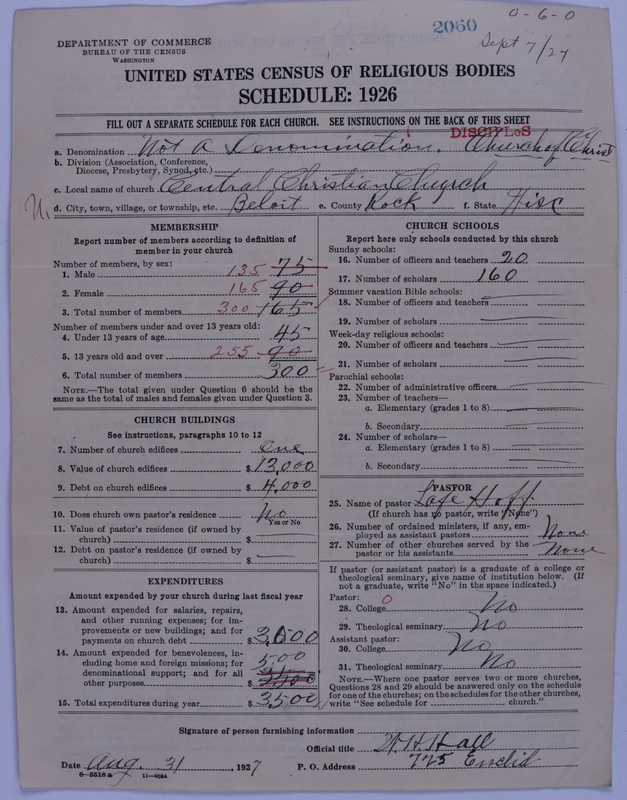 0-6-0
2060
Sept 7/27
DEPARTMENT OF COMMERCE
BUREAU OF THE CENSUS
WASHINGTON
UNITED STATES CENSUS OF RELIGIOUS BODIES
SCHEDULE: 1926
FILL OUT A SEPARATE SCHEDULE FOR EACH CHURCH. SEE INSTRUCTIONS ON THE BACK OF THIS SHEET
DISCIPLES
a. Denomination Not a Denomination. Church of Christ
b. Division (Association, Conference, Diocese, Presbytery, Synod, etc.)
c. Local name of church Central Christian Church
d. City, town, village, or township, etc. Beloit e. County Rock f. State Wisc
MEMBERSHIP
Report number of members according to definition of member in your church
Number of members, by sex:
1. Male 135 75
2. Female 165 90
3. Total number of members 300 165
Number of members under and over 13 years old:
4. Under 13 years of age 45
5. 13 years old and over 255 90
6. Total number of members 300
NOTE.—The total given under Question 6 should be the same as the total of males and females given under Question 3.
CHURCH BUILDINGS
See instructions, paragraphs 10 to 12
7. Number of church edifices One
8. Value of church edifices $13,000
9. Debt on church edifices $4,000
10. Does church own pastor's residence? No
Yes or No
11. Value of pastor's residence (if owned by church) $
12. Debt on pastor's residence (if owned by church) $
EXPENDITURES
Amount expended by your church during last fiscal year
13. Amount expended for salaries, repairs, and other running expenses; for improvements or new buildings; and for payments on church debt $3,000
14. Amount expended for benevolences, including home and foreign missions; for denominational support; and for all other purposes 500 $3500
15. Total expenditures during year $3500
CHURCH SCHOOLS
Report here only schools conducted by this church
Sunday schools:
16. Number of officers and teachers 20
17. Number of scholars 160
Summer vacation Bible schools:
18. Number of officers and teachers
19. Number of scholars
Week-day religious schools:
20. Number of officers and teachers
21. Number of scholars
Parochial schools:
22. Number of administrative officers
23. Number of teachers—
a. Elementary (grades 1 to 8)
b. Secondary
24. Number of scholars—
a. Elementary (grades 1 to 8)
b. Secondary
PASTOR
25. Name of pastor Lafe Hoff
(If church has no pastor, write "None")
26. Number of ordained ministers, if any, employed as assistant pastors None
27. Number of other churches served by the pastor or his assistants None
If pastor (or assistant pastor) is a graduate of a college or theological seminary, give name of institution below. (If not a graduate, write "No" in the space indicated.)
Pastor: 0
28. College No
29. Theological seminary No
Assistant pastor:
30. College No
31. Theological seminary No
NOTE.—Where one pastor serves two or more churches, Questions 28 and 29 should be answered only on the schedule for one of the churches; on the schedules for the other churches, write "See schedule for church."
Signature of person furnishing information
Official title W. H. Hall
Date Aug. 31, 1927 P. O. Address 725 Euclid
6-5516a 11-9054